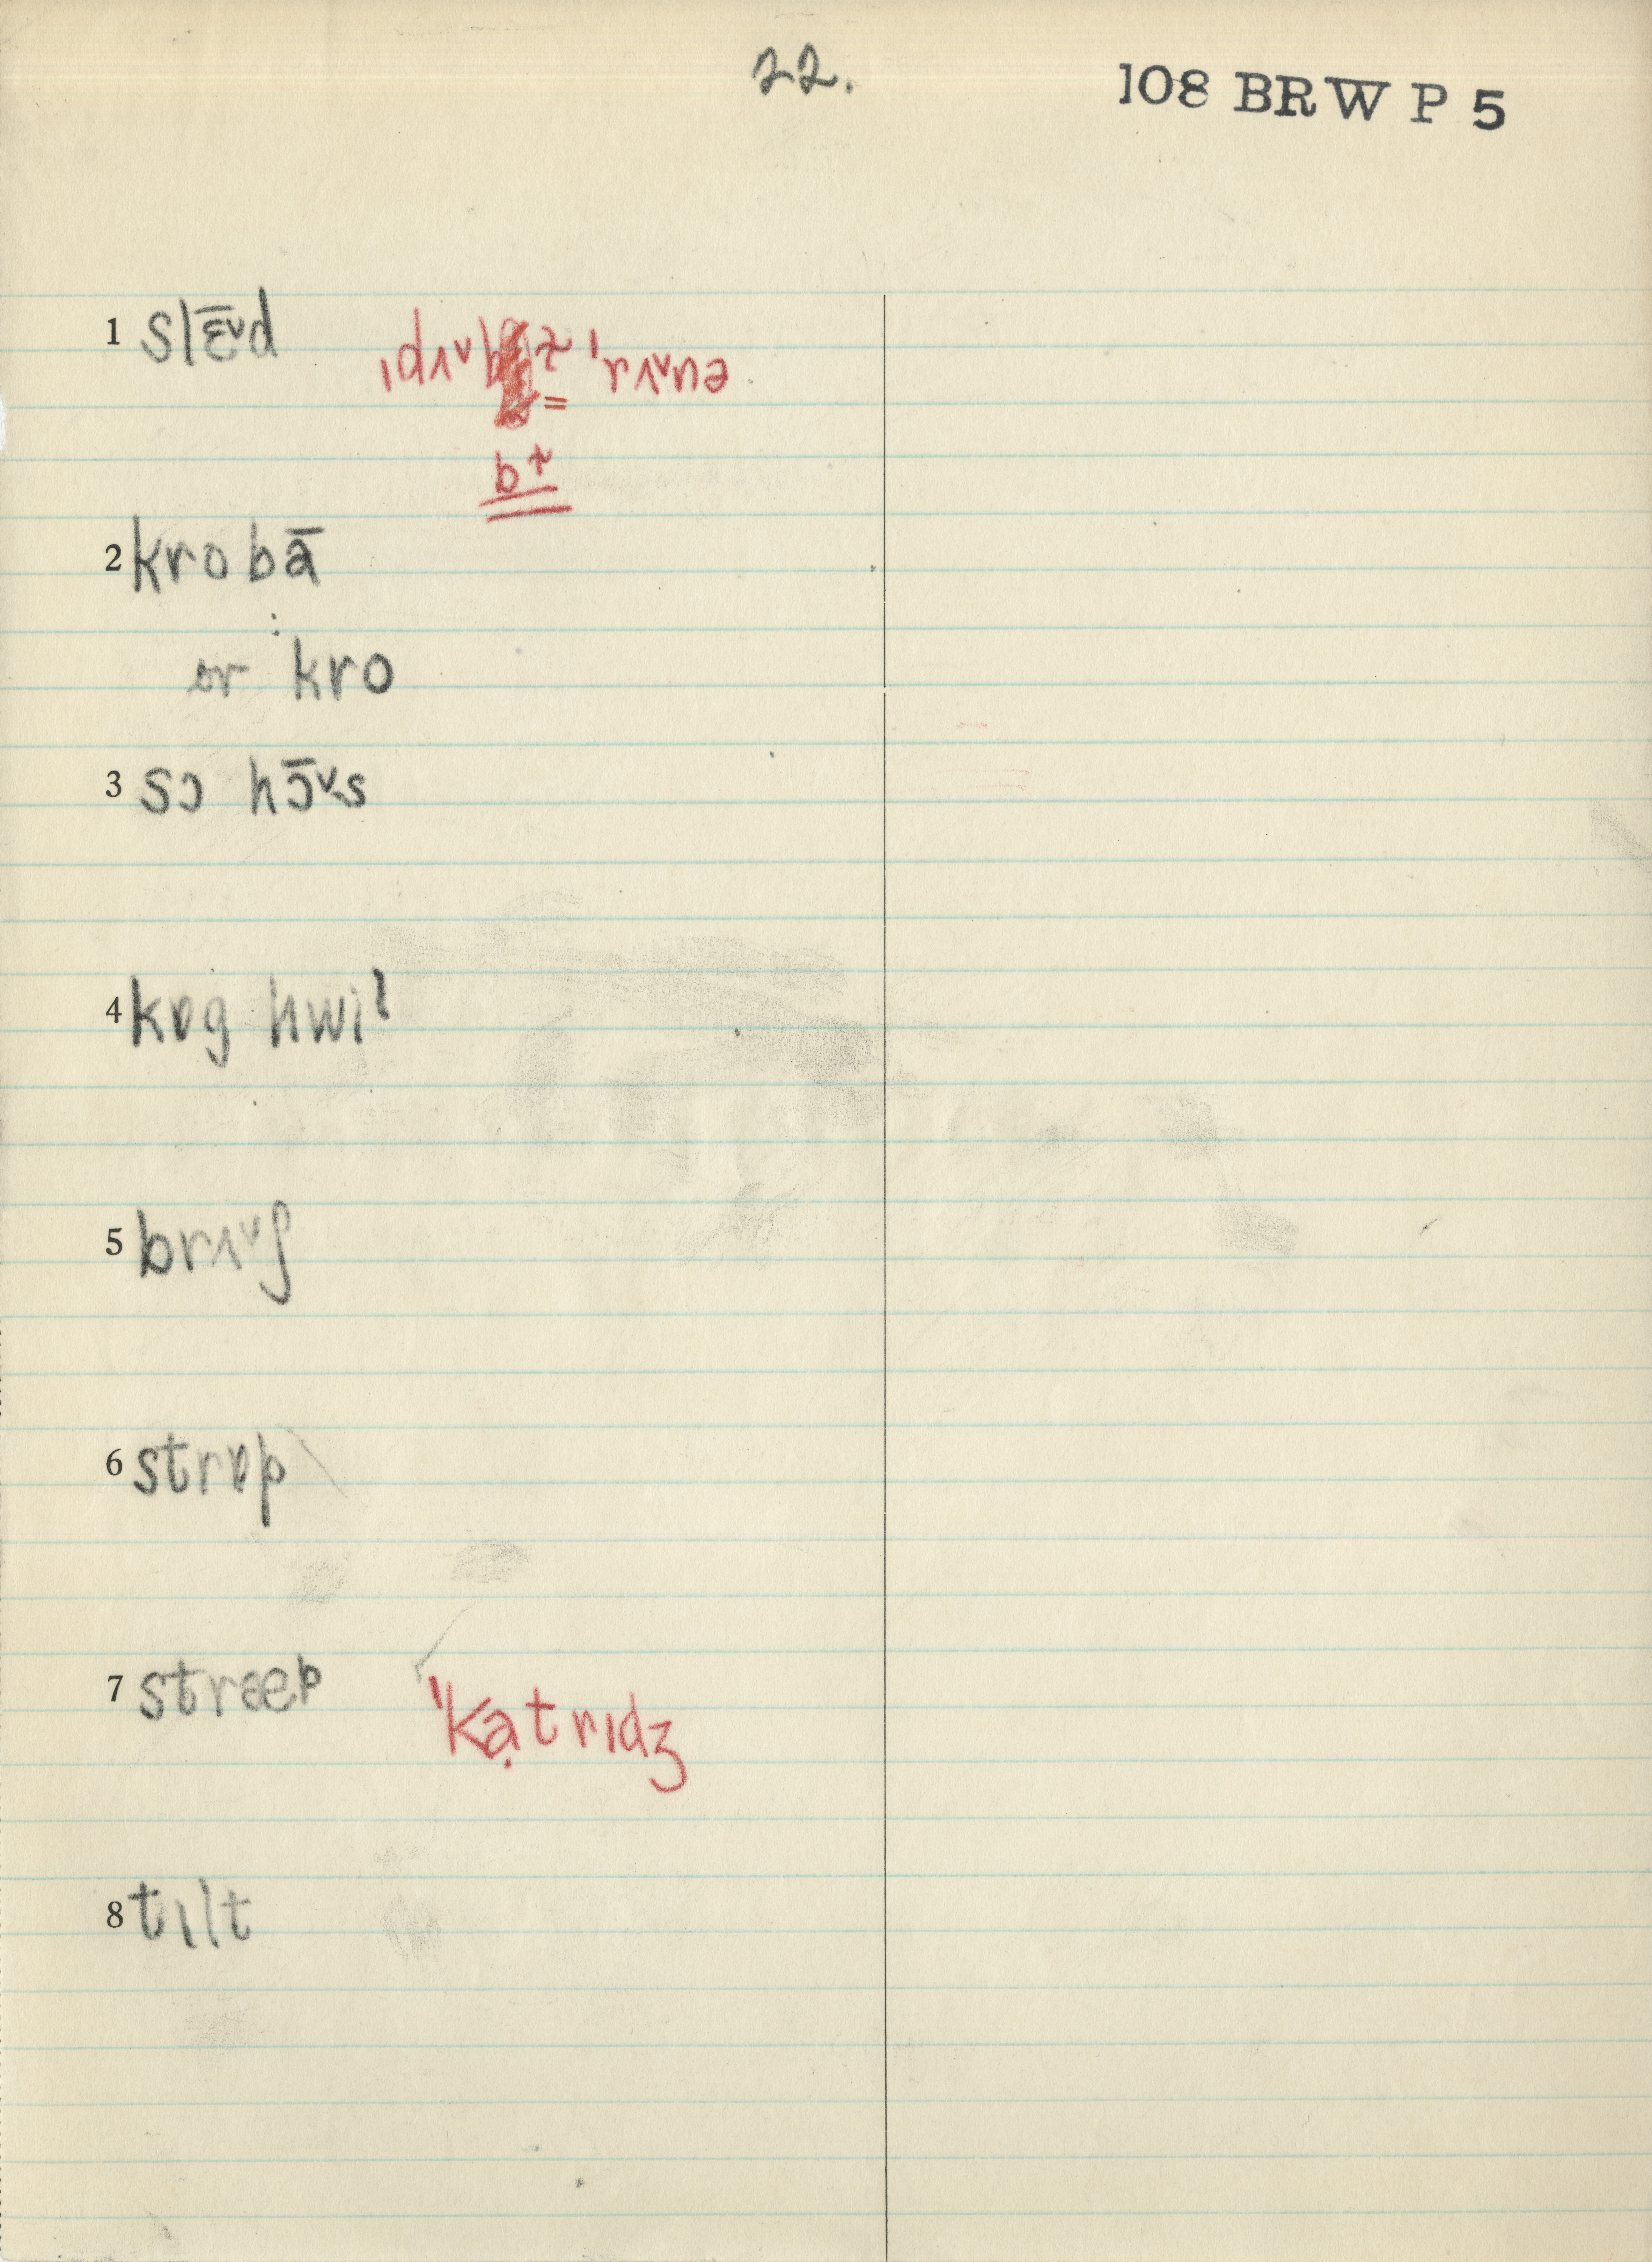 22.
108 BRW P 5
1 slɛ̄ᵛd ˌdʌᵛbɫ̩ ˈrʌᵛnə
bɫ
2 krobā
or kro
3 sɔ hɔ̄ᵛs
4 kɒg hwil
5 brʌᵛʃ
6 strɒp
7 stræp ˈkạtrɪdʒ
8 tɪlt